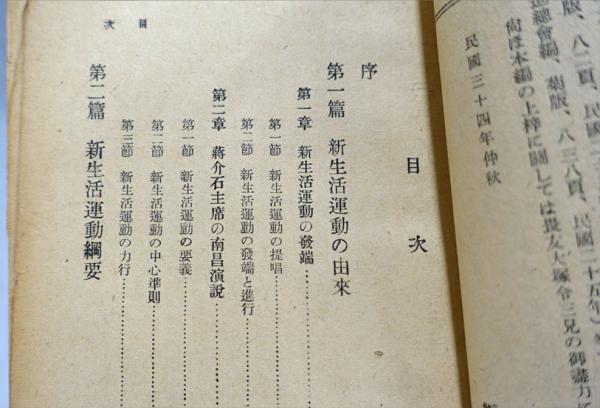 版、八二頁、民國
總會編、菊版、八三八頁、民國二十五年）
尙ほ本編の上梓に關しては畏友大塚令三兄の御盡力
民國三十四年仲秋
目次
序
第一篇 新生活運動の由來
第一章 新生活運動の發端
第一節 新生活運動の提唱
第二節 新生活運動の發端と進行
第二章 蔣介石主席の南昌演說
第一節 新生活運動の要義
第二節 新生活運動の中心準則
第三節 新生活運動の力行
第二篇 新生活運動綱要
目次